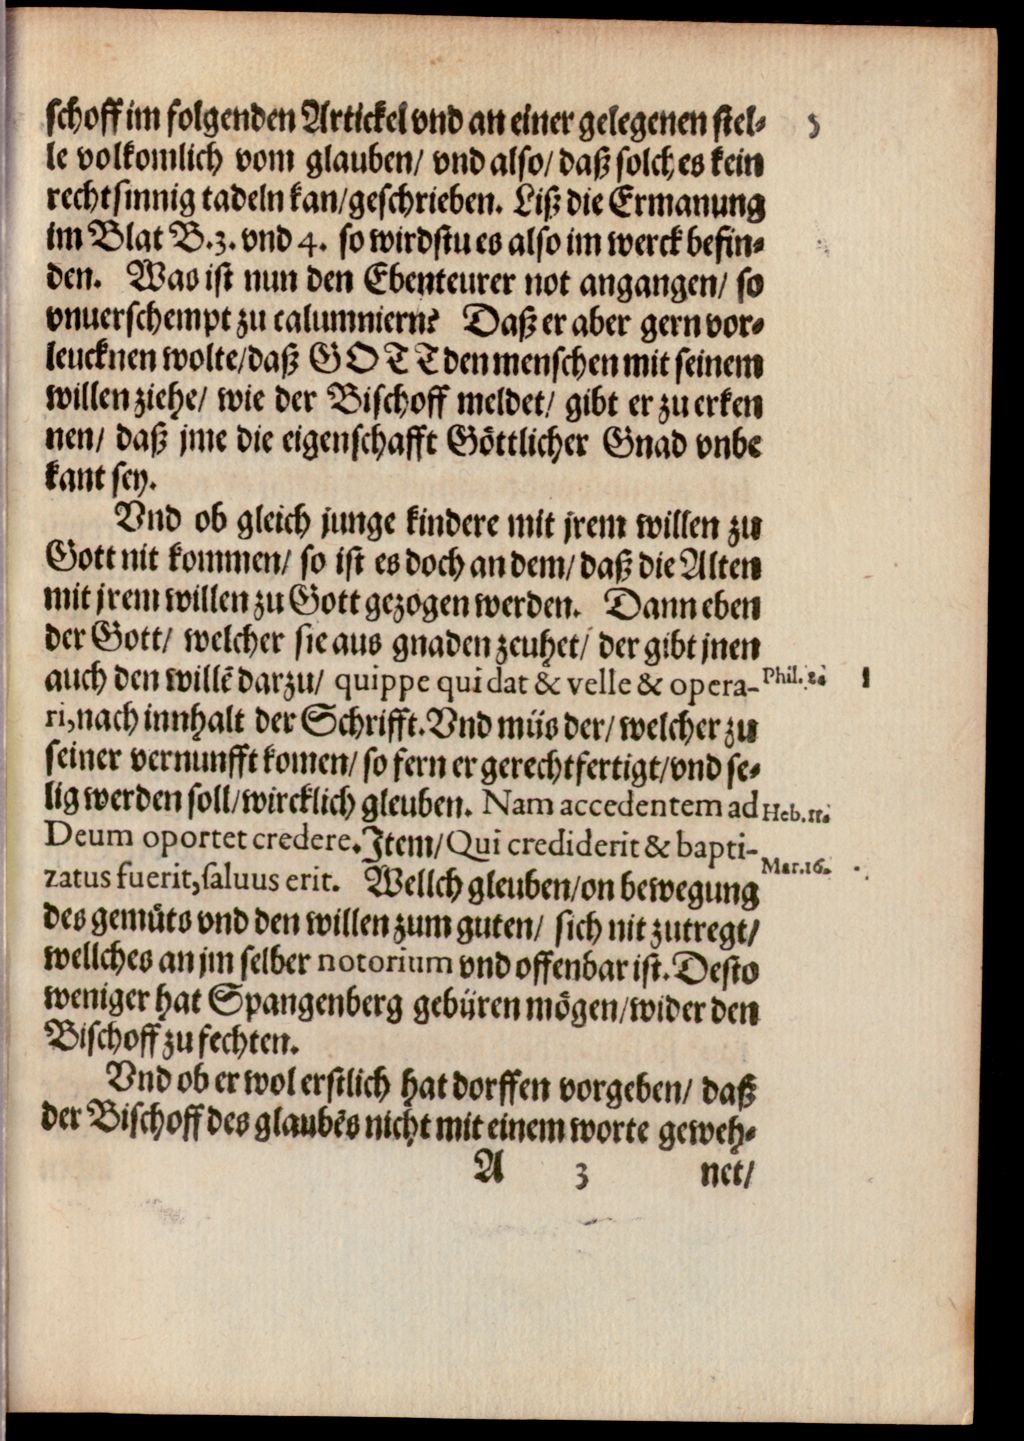 schoff im folgenden Artickel vnd an einer gelegenen stel⸗
le volkomlich vom glauben/ vnd also/ daß solches kein
rechtsinnig tadeln kan/geschrieben. Liß die Ermanung
im Blat B.3. vnd 4. so wirdstu es also im werck befin⸗
den. Was ist nun den Ebenteurer not angangen/ so
vnuerschempt zu calumniern? Daß er aber gern vor⸗
leucknen wolte/daß GOTT den menschen mit seinem
willen ziehe/ wie der Bischoff meldet/ gibt er zu erken
nen/ daß jme die eigenschafft Göttlicher Gnad vnbe
kant sey.
Vnd ob gleich junge kindere mit jrem willen zu
Gott nit kommen/ so ist es doch an dem/ daß die Alten
mit jrem willen zu Gott gezogen werden. Dann eben
der Gott/ welcher sie aus gnaden zeuhet/ der gibt jnen
auch den willē darzu/ quippe qui dat & velle & opera- Phil. 2.
ri, nach innhalt der Schrifft. Vnd müs der/ welcher zu
seiner vernunfft komen/ so fern er gerechtfertigt/vnd se⸗
lig werden soll/wircklich gleuben. Nam accedentem ad Heb. 11.
Deum oportet credere. Item/ Qui crediderit & bapti-
zatus fuerit, saluus erit. Wellch gleuben/on bewegung Mar. 16.
des gemüts vnd den willen zum guten/ sich nit zutregt/
wellches an jm selber notorium vnd offenbar ist. Desto
weniger hat Spangenberg gebüren mögen/wider den
Bischoff zu fechten.
Vnd ob er wol erstlich hat dorffen vorgeben/ daß
der Bischoff des glaubēs nicht mit einem worte geweh⸗
A 3 net/